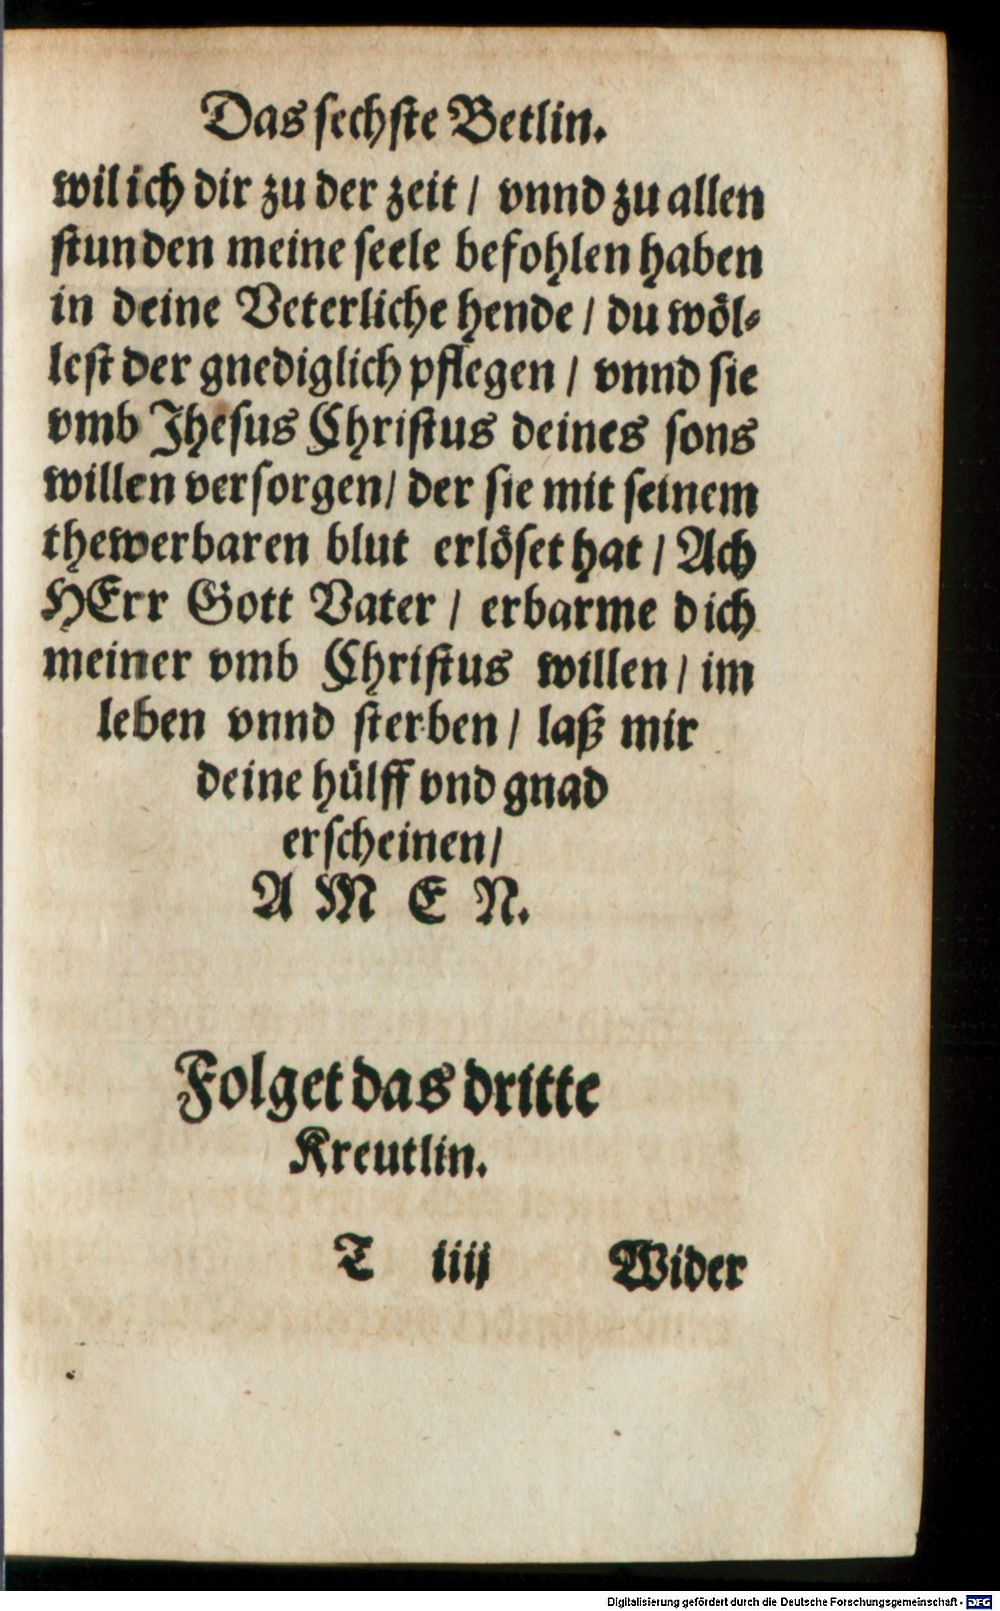 Das sechste Betlin.
wil ich dir zu der zeit / vnnd zu allen
stunden meine seele befohlen haben
in deine Veterliche hende / du wöl-
lest der gnediglich pflegen / vnnd sie
vmb Jhesus Christus deines sons
willen versorgen / der sie mit seinem
thewerbaren blut erlöset hat / Ach
HErr Gott Vater / erbarme dich
meiner vmb Christus willen / im
leben vnnd sterben / laß mir
deine hülff vnd gnad
erscheinen /
A M E N.
Folget das dritte
Kreutlin.
T iiij Wider
Digitalisierung gefördert durch die Deutsche Forschungsgemeinschaft - DFG